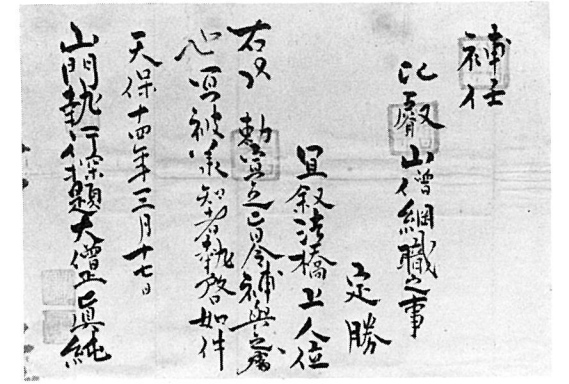 補任
比叡山僧綱職之事
定勝
宜叙法橋上人位
右以　勅宣之旨令補與之者
宜被承知者執啓如件
天保十四年三月十七日
山門執行探題大僧正真純